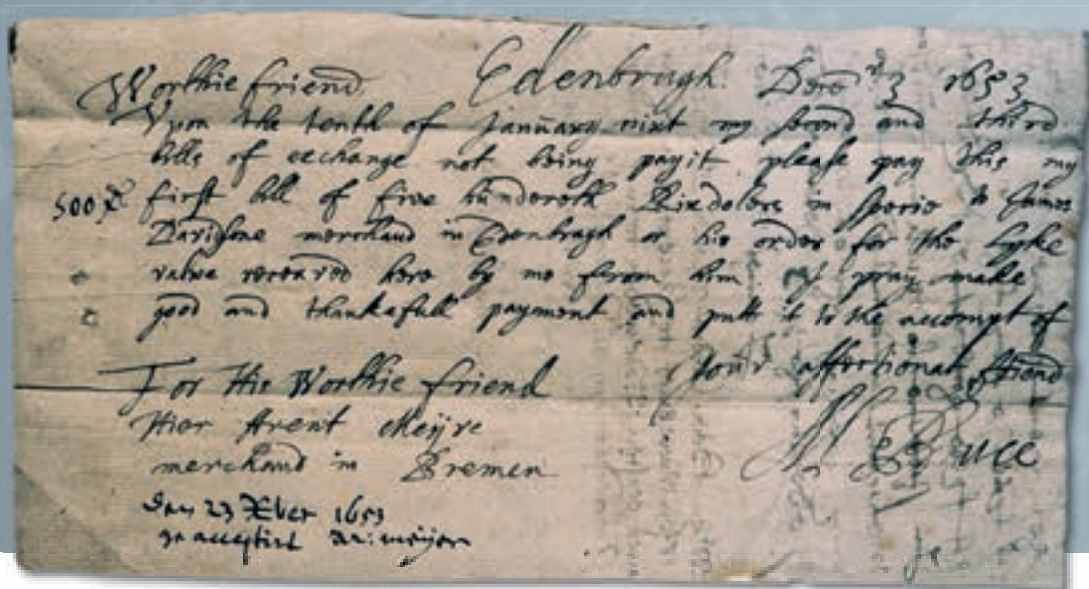 Edenbrugh. Decr 3 1653
Worthie friend.
Vpon the tenth of Januarij nixt my second and third
bills of exchange not being payit please pay this my
500 first bill of five hundereth Rixdolors in specie to James
Davidsone merchand in Edenbrugh or his order for the lyke
value receaved here by me from him pray make
good and thankefull payment and putt it to the accompt of
Your affectionat friend
For His Worthie friend
Hier Arent Meijre
merchand in Bremen
Bruce
den 23 Xber 1653
geacceptirt